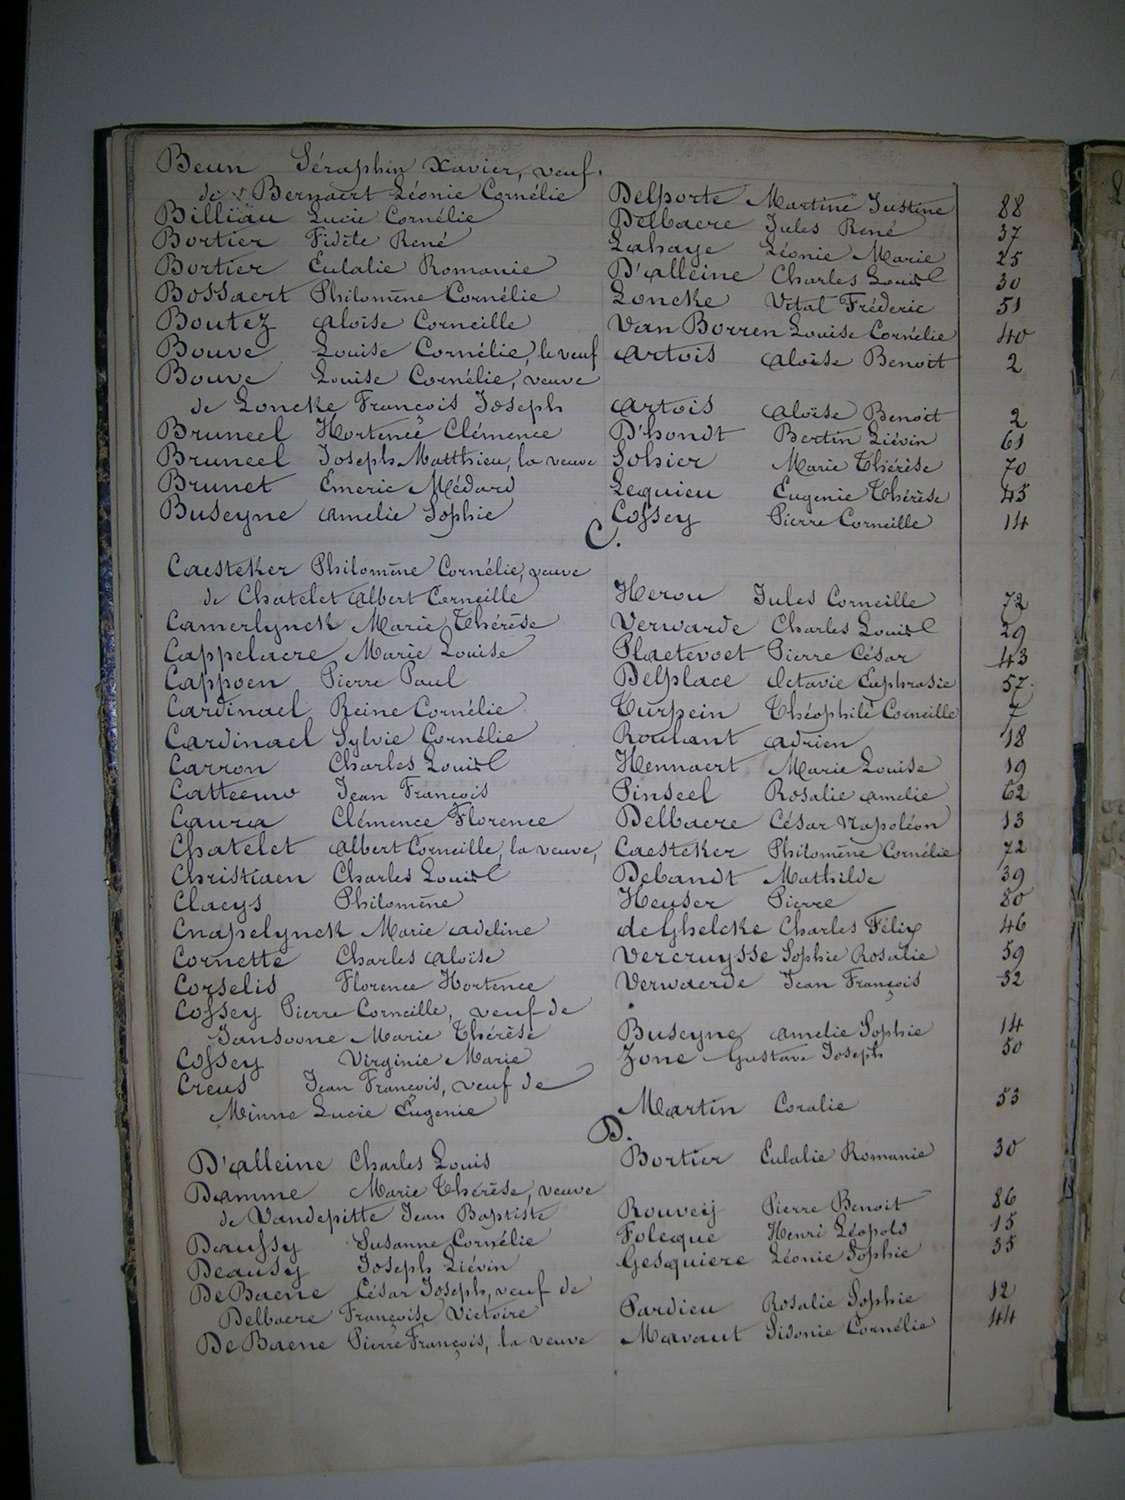 Beun Séraphin Xavier, veuf
de Bernaert Léonie Cornélie Delporte Martine Justine 88
Billiau Lucie Cornélie Delbaere Jules René 37
Bortier Fidèle René Lahaye Léonie Marie 25
Bortier Eulalie Romanie D'alleine Charles Louis 30
Bossaert Philomène Cornélie Loncke Vital Fréderic 51
Boutez Aloïse Corneille Van Borren Louise Cornélie 40
Bouve Louise Cornélie, le veuf Artois Aloïse Benoit 2
Bouve Louise Cornélie, veuve
de Loncke François Joseph Artois Aloïse Benoit 2
Bruneel Hortence Clémence D'hondt Bertin Liévin 61
Bruneel Joseph Matthieu, la veuve Sohier Marie Thérèse 70
Brunet Emeric Médard Lequieu Eugenie Thérèse 45
Buseyne Amelie Sophie Cossey Pierre Corneille 14
C.
Caesteker Philomène Cornélie, veuve
de Chatelet Albert Corneille Herou Jules Corneille 72
Camerlynck Marie Thérèse Verwarde Charles Louis 29
Cappelaere Marie Louise Plaetevoet Pierre César 43
Cappoen Pierre Paul Delplace Octavie Euphrasie 57
Cardinael Reine Cornélie Turpein Théophile Corneille 7
Cardinael Sylvie Cornélie Roulant Adrien 18
Carron Charles Louis Hennaert Marie Louise 19
Catteeuw Jean François Pinseel Rosalie Amelie 62
Caura Clémence Florence Delbaere César Napoléon 13
Chatelet Albert Corneille, la veuve, Caesteker Philomène Cornélie 72
Christiaen Charles Louis Debandt Mathilde 39
Claeys Philomène Heuser Pierre 80
Cnapelynck Marie Adeline de Ghelcke Charles Félix 46
Cornette Charles Aloïse Vercruysse Sophie Rosalie 59
Corselis Florence Hortence Verwaerde Jean François 52
Cossey Pierre Corneille, veuf de
Jansoone Marie Thérèse Buseyne Amelie Sophie 14
Cossey Virginie Marie Zone Gustave Joseph 50
Creus Jean François, veuf de
Minne Lucie Eugenie Martin Coralie 53
D.
D'alleine Charles Louis Bortier Eulalie Romanie 30
Damme Marie Thérèse, veuve
de Vandepitte Jean Baptiste Rouveij Pierre Benoit 86
Daussy Susanne Cornélie Folcque Henri Léopold 15
Deausy Joseph Liévin Gesquiere Léonie Sophie 35
De Baene César Joseph, veuf de
Delbaere Françoise Victoire Pardieu Rosalie Sophie 12
De Baene Pierre François, la veuve Mavaut Sidonie Cornélie 44